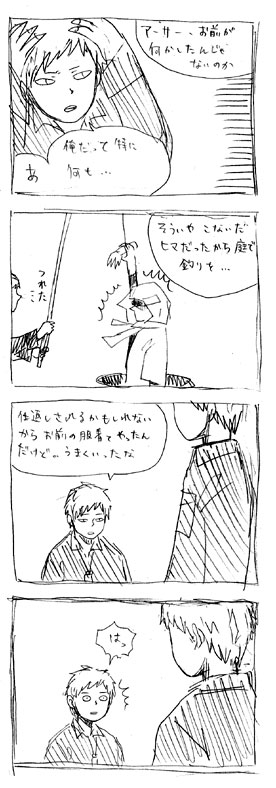 アーサー、お前が
何かしたんじゃ
ないのか
俺だって特に
何も…
あ
そういや こないだ
ヒマだったから庭で
釣りを…
つれた
仕返しされるかもしれない
から お前の服着てやったん
だけど。。うまくいったな
はっ